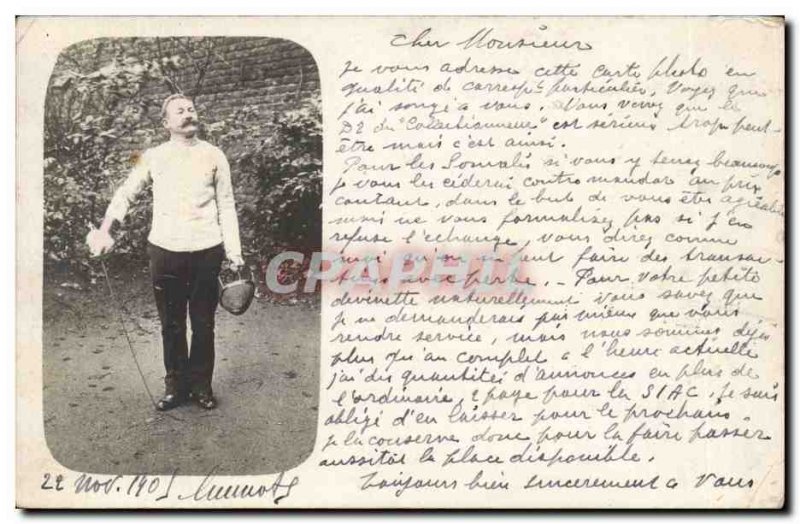 cher Monsieur
Je vous adresse cette carte photo en
qualité de corresp^t particulier, Voyez que
j'ai songé a vous. Vous verrez que le
du "Collectionneur" est sérieux trop peut-
être mais c'est ainsi.
Pour les Somalis si vous y tenez beaucoup
je vous les céderai contre mandat au prix
coutant, dans le but de vous être agréable
mais ne vous formalisez pas si j'en
refuse l'échange, vous direz comme
moi qu'on ne peut faire des transac-
tions avec perte. - Pour votre petite
devinette naturellement vous savez que
je ne demanderais pas mieux que vous
rendre service, mais nous sommes déjà
plus qu'au complet a l'heure actuelle
j'ai des quantités d'annonces en plus de
l'ordinaire, 1 page pour la SIAC, je suis
obligé d'en laisser pour le prochain.
Je la conserve donc pour la faire passer
aussitôt la place disponible.
Toujours bien sincerement a Vous
22 Nov. 1905
CPARAMA